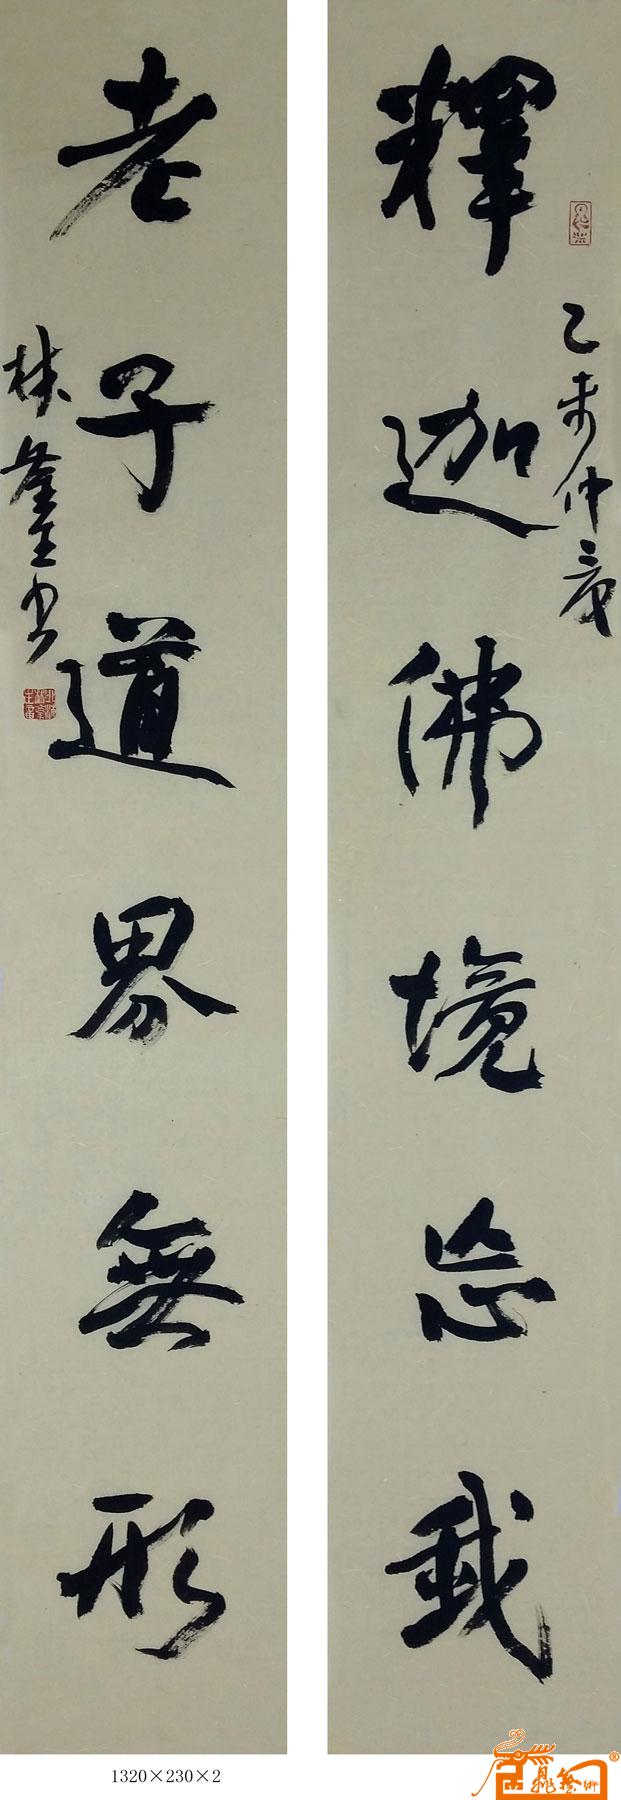 乙未仲夏
釋迦佛境忘我
老子道界無形
1320×230×2